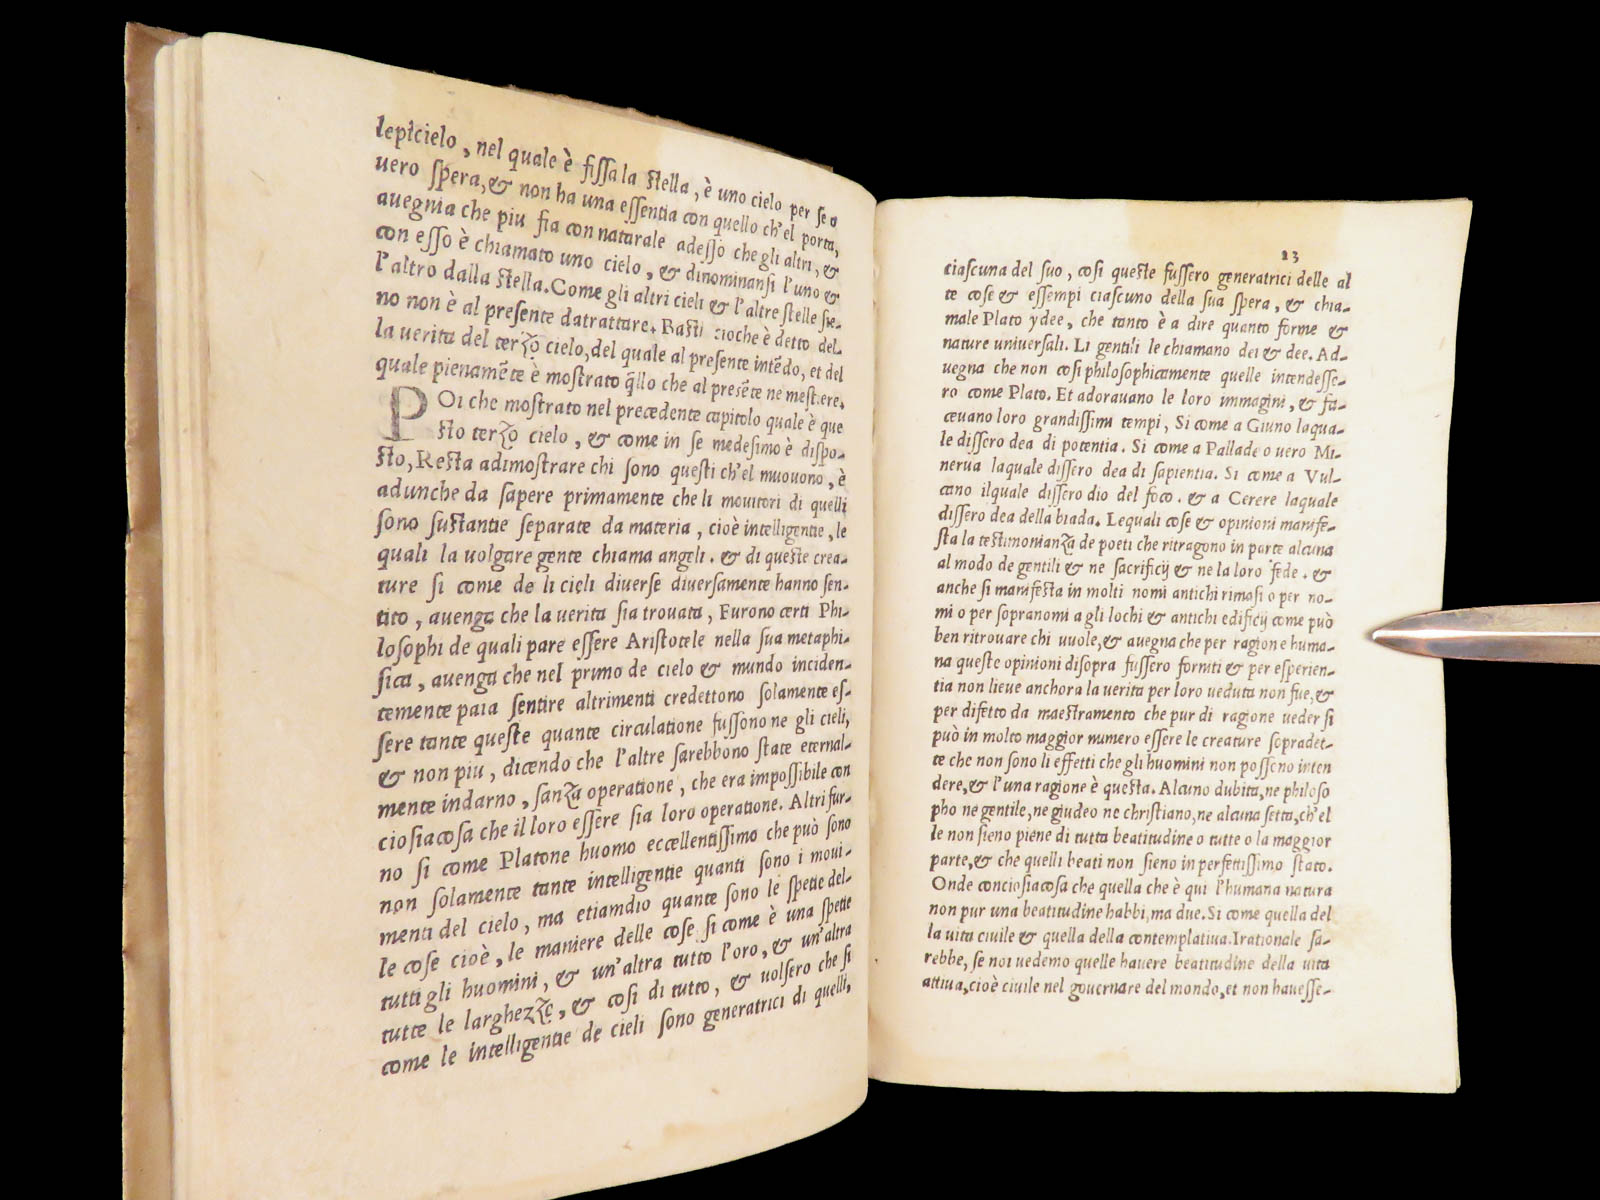 lepicielo, nel quale è fissa la stella, è uno cielo per se o
vero spera, & non ha una essentia con quello ch'el porta,
auegnia che piu fia con naturale adesso che gli altri, &
con esso è chiamato uno cielo, & dinominansi l'uno &
l'altro dalla stella. Come gli altri cieli & l'altre stelle sie-
no non è al presente da trattare. Basti cioche è detto del-
la verita del terzo cielo, del quale al presente intēdo, et del
quale pienamēte è mostrato q̄llo che al presēte ne mestiere.
POi che mostrato nel precedente capitolo quale è que
sto terzo cielo, & come in se medesimo è dispo-
sto, Resta adimostrare chi sono questi ch'el muouono, è
adunche da sapere primamente che li mouitori di quelli
sono sustantie separate da materia, cioè intelligentie, le
quali la uolgare gente chiama angeli. & di queste crea-
ture si come de li cieli diuerse diuersamente hanno sen-
tito, auenga che la uerita sia trouata, Furono certi Phi-
losophi de quali pare essere Aristotele nella sua metaphi-
sica, auenga che nel primo de cielo & mundo inciden-
temente paia sentire altrimenti credettono solamente es-
sere tante queste quante circulatione fussono ne gli cieli,
& non piu, dicendo che l'altre sarebbono state eternal-
mente indarno, sanza operatione, che era impossibile con
ciosiacosa che il loro essere sia loro operatione. Altri fur-
no si come Platone huomo eccellentissimo che può sono
non solamente tante intelligentie quanti sono i moui-
menti del cielo, ma etiamdio quante sono le spetie del-
le cose cioè, le maniere delle cose si come è una spetie
tutti gli huomini, & un'altra tutto l'oro, & un'altra
tutte le larghezze, & cosi di tutto, & uolsero che si
come le intelligentie de cieli sono generatrici di quelli,
23
ciascuna del suo, cosi queste fussero generatrici delle al
te cose & essempi ciascuno della sua spera, & chia-
male Plato ydee, che tanto è a dire quanto forme &
nature uniuersali. Li gentili le chiamano dei & dee. Ad-
uegna che non cosi philosophicamente quelle intendesse-
ro come Plato. Et adorauano le loro immagini, & fa-
ceuano loro grandissimi tempi, Si come a Giuno laqua-
le dissero dea di potentia. Si come a Pallade o uero Mi-
nerua laquale dissero dea di sapientia. Si come a Vul-
cano ilquale dissero dio del foco. & a Cerere laquale
dissero dea della biada. Lequali cose & opinioni manife-
sta la testimonianza de poeti che ritragono in parte alcuna
al modo de gentili & ne sacrificij & ne la loro fede. &
anche si manifesta in molti nomi antichi rimasi o per no-
mi o per sopranomi a gli lochi & antichi edificij come può
ben ritrouare chi uuole, & auegna che per ragione huma-
na queste opinioni disopra fussero forniti & per esperien-
tia non lieue anchora la uerita per loro ueduta non fue, &
per difetto da maestramento che pur di ragione ueder si
può in molto maggior numero essere le creature sopradet-
te che non sono li effetti che gli huomini non possono inten
dere, & l'una ragione è questa. Alcuno dubita, ne philoso
pho ne gentile, ne giudeo ne christiano, ne alcuna setta, ch'el
le non sieno piene di tutta beatitudine o tutte o la maggior
parte, & che quelli beati non sieno in perfettissimo stato.
Onde conciosiacosa che quella che è qui l'humana natura
non pur una beatitudine habbi, ma due. Si come quella del
la uita ciuile & quella della contemplatiua. Irationale sa-
rebbe, se noi uedemo quelle hauere beatitudine della uita
attiua, cioè ciuile nel gouernare del mondo, et non hauesse-